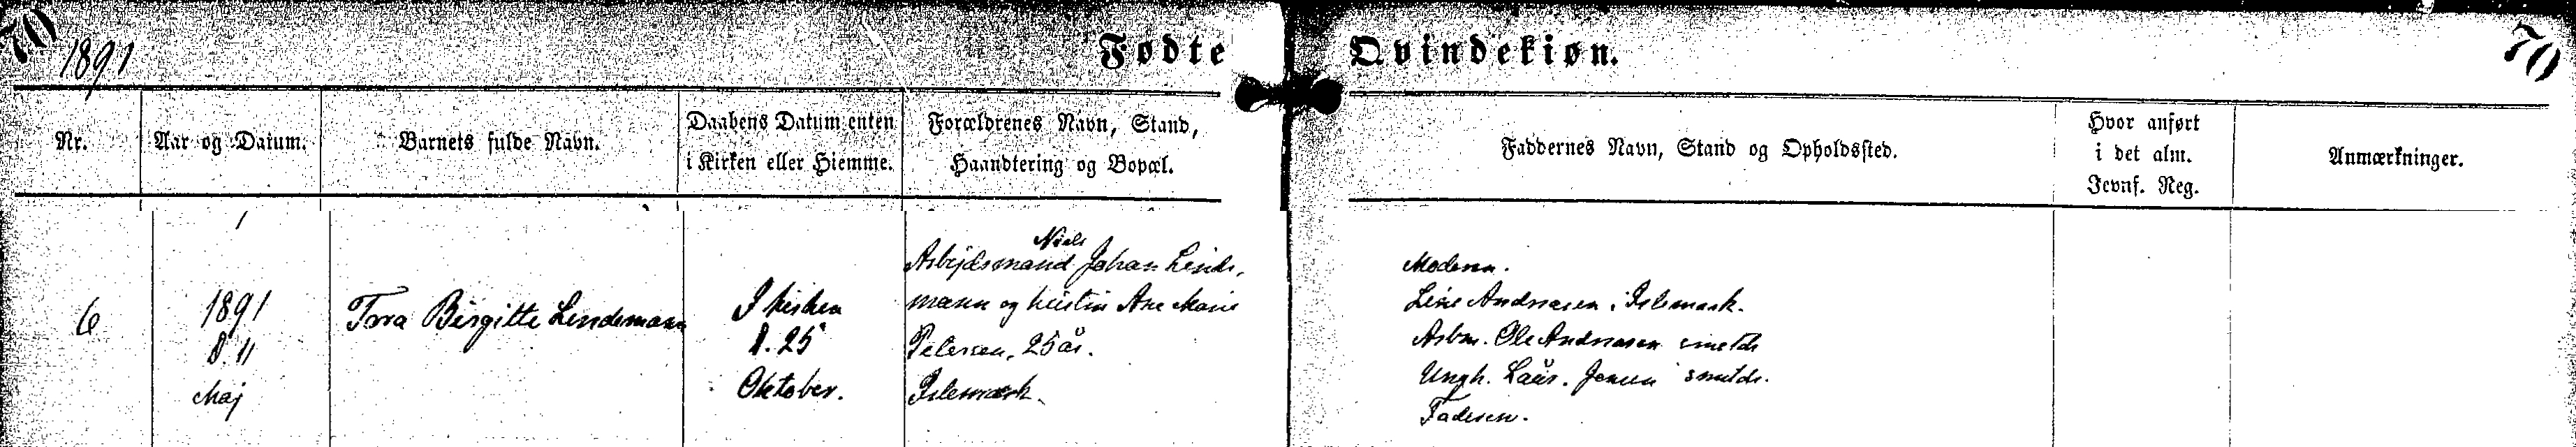 70
1891
Fødte
Qvindekiøn.
70
Nr.
Aar og Datum.
Barnets fulde Navn.
Daabens Datum enten
i Kirken eller Hiemme.
Forældrenes Navn, Stand,
Haandtering og Bopæl.
Faddernes Navn, Stand og Opholdssted.
Hvor anført
i det alm.
Jevnf. Reg.
Anmærkninger.
6
1891
d. 11
Maj
Tora Birgitte Lindemann
I kirken
d. 25
Oktober.
Niels
Arbejdsmand Johan Linde-
mann og hustru Ane Marie
Petersen, 25 år.
Islemark.
Moderen.
Line Andreasen i Islemark.
Arbm. Ole Andreasen smstds
Ungk. Laur. Jensen smstds.
Faderen.